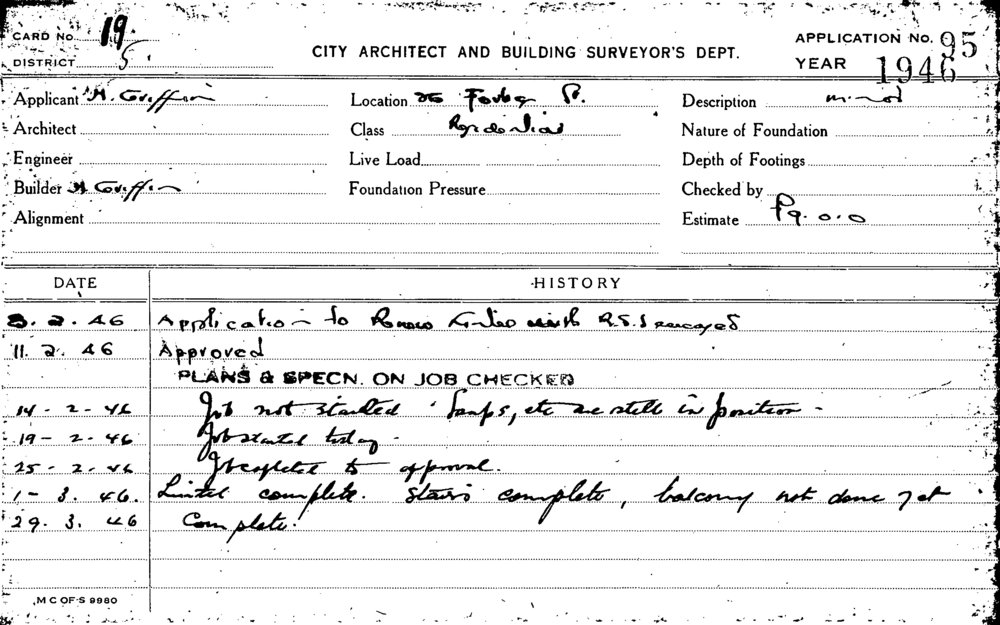 CARD No. 19.
DISTRICT 5
CITY ARCHITECT AND BUILDING SURVEYOR'S DEPT.
APPLICATION No. 95
YEAR 1946
Applicant H. Griffin Location St. Description minor
Architect Class Residential Nature of Foundation
Engineer Live Load Depth of Footings
Builder H Griffin Foundation Pressure Checked by
Alignment Estimate £9.0.0
DATE HISTORY
2. 46 Application to with R.S.J
11. 2. 46 Approved
PLANS & SPECN. ON JOB CHECKED
14 - 2 - 46 Job not started etc are still in position -
19 - 2 - 46 Job started today -
25 - 2 - 46 Job completed to approval.
1 - 3. 46. Lintel complete. Stairs complete, balcony not done yet
29. 3. 46 Complete.
M C OF S 9980